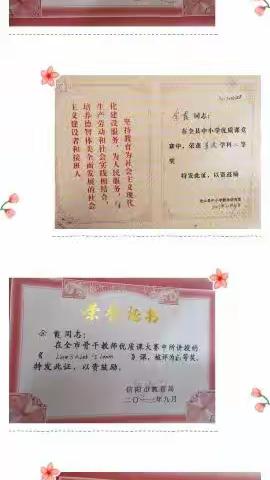 坚持教育为社会主义现代
化建设服务，为人民服务，与
生产劳动和社会实践相结合，
培养德智体美全面发展的社会
主义建设者和接班人
余霞 同志：
在全县中小学优质课竞
赛中，荣获 学科 等
奖
特发此证，以资鼓励
荣誉证书
余霞同志：
在全市骨干教师优质课大赛中所讲授的
《 》课，被评为 等奖。
特发此证，以资鼓励。
信阳市教育局
二〇一三年九月